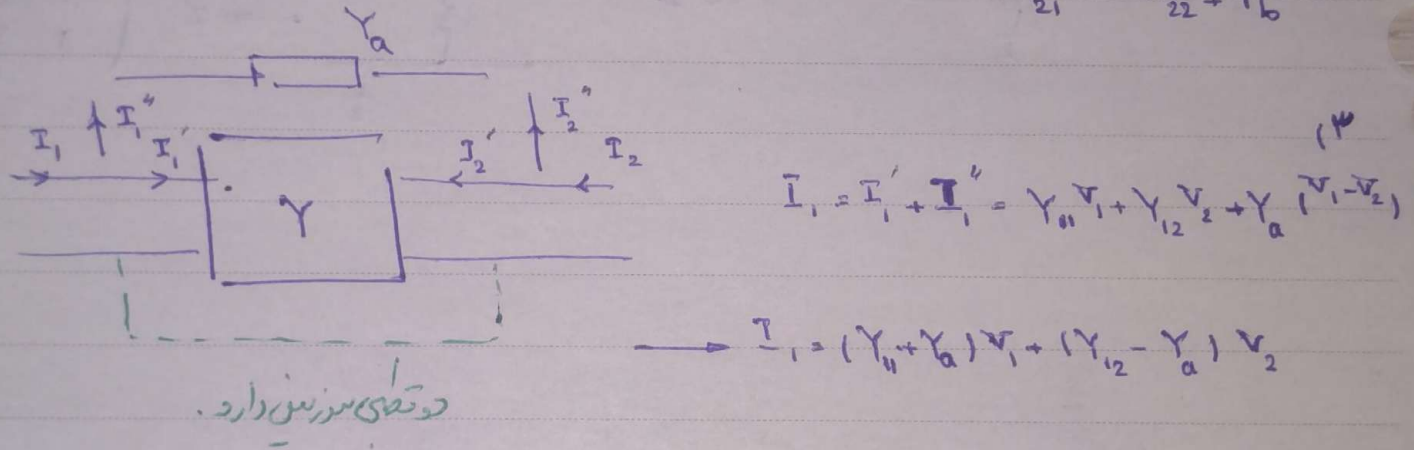 21 22 + Yb
Ya
I₁ I₁" I₁' I₂' I₂" I₂
Y
۱۳
I₁ = I₁' + I₁" = Y₁₁V₁ + Y₁₂V₂ + Ya (V₁-V₂)
→ I₁ = (Y₁₁+Ya)V₁ + (Y₁₂ - Ya) V₂
دو قطبی سر زمین دارد.